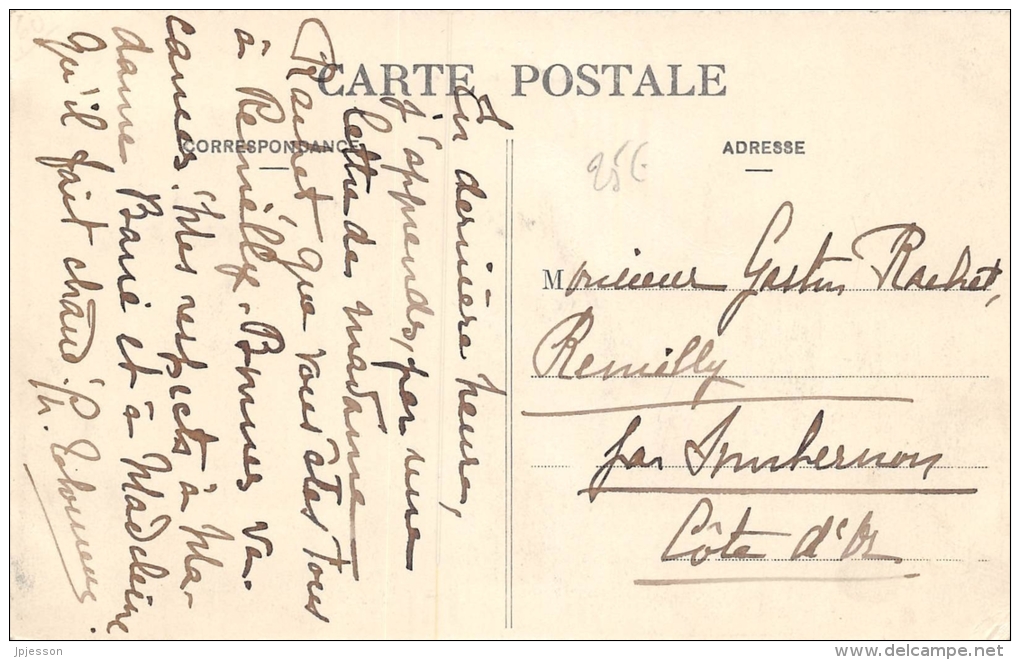 CARTE POSTALE
CORRESPONDANCE
ADRESSE
25€
En dernière heure,
j'apprends, par une
lettre de madame
Rachet que vous êtes tous
à Remilly. Bonnes va-
cances. Mes respects à Ma-
dame, Barié et à Madeleine
qu'il fait chaud!
Monsieur Gaston Rachet,
Remilly
par Sombernon
Côte d'Or
jpjesson
www.delcampe.net